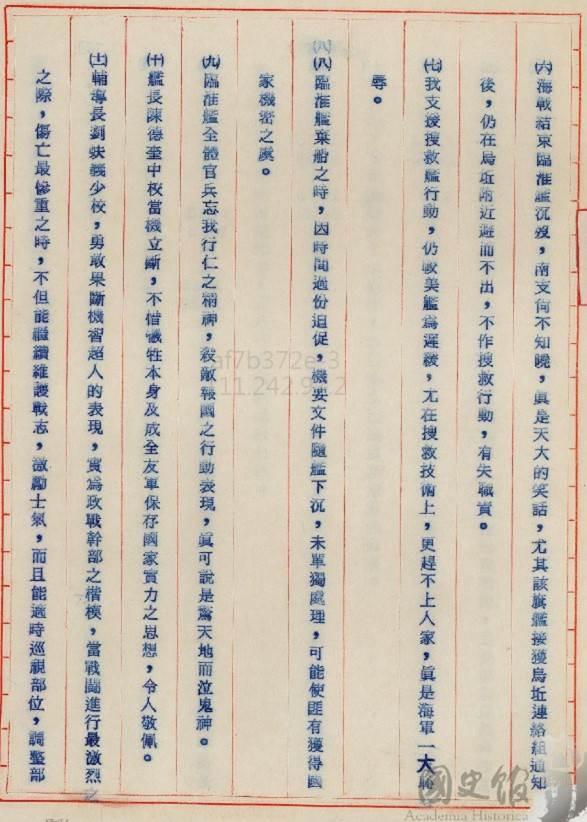 ㈥海戰結束臨淮艦沉沒，南支尚不知曉，眞是天大的笑話，尤其該旗艦接獲烏坵連絡組通知
後，仍在烏坵附近避而不出，不作搜救行動，有失職責。
㈦我支援搜救艦行動，仍較美艦爲遲緩，尤在搜救技術上，更趕不上人家，眞是海軍一大恥
辱。
㈧㈧臨淮艦棄船之時，因時間過份迫促，機要文件隨艦下沉，未單獨處理，可能使匪有獲得國
家機密之虞。
㈨臨淮艦全體官兵忘我行仁之精神，殺敵報國之行動表現，眞可說是驚天地而泣鬼神。
㈩艦長陳德奎中校當機立斷，不惜犧牲本身及成全友軍保存國家實力之思想，令人敬佩。
(十一)輔導長劉玦義少校，勇敢果斷機智超人的表現，實爲政戰幹部之楷模，當戰鬪進行最激烈之
之際，傷亡最慘重之時，不但能繼續維護戰志，激勵士氣，而且能適時巡視部位，調整部
af7b372e-3
11.242.9.2
國史館
Academia Historica